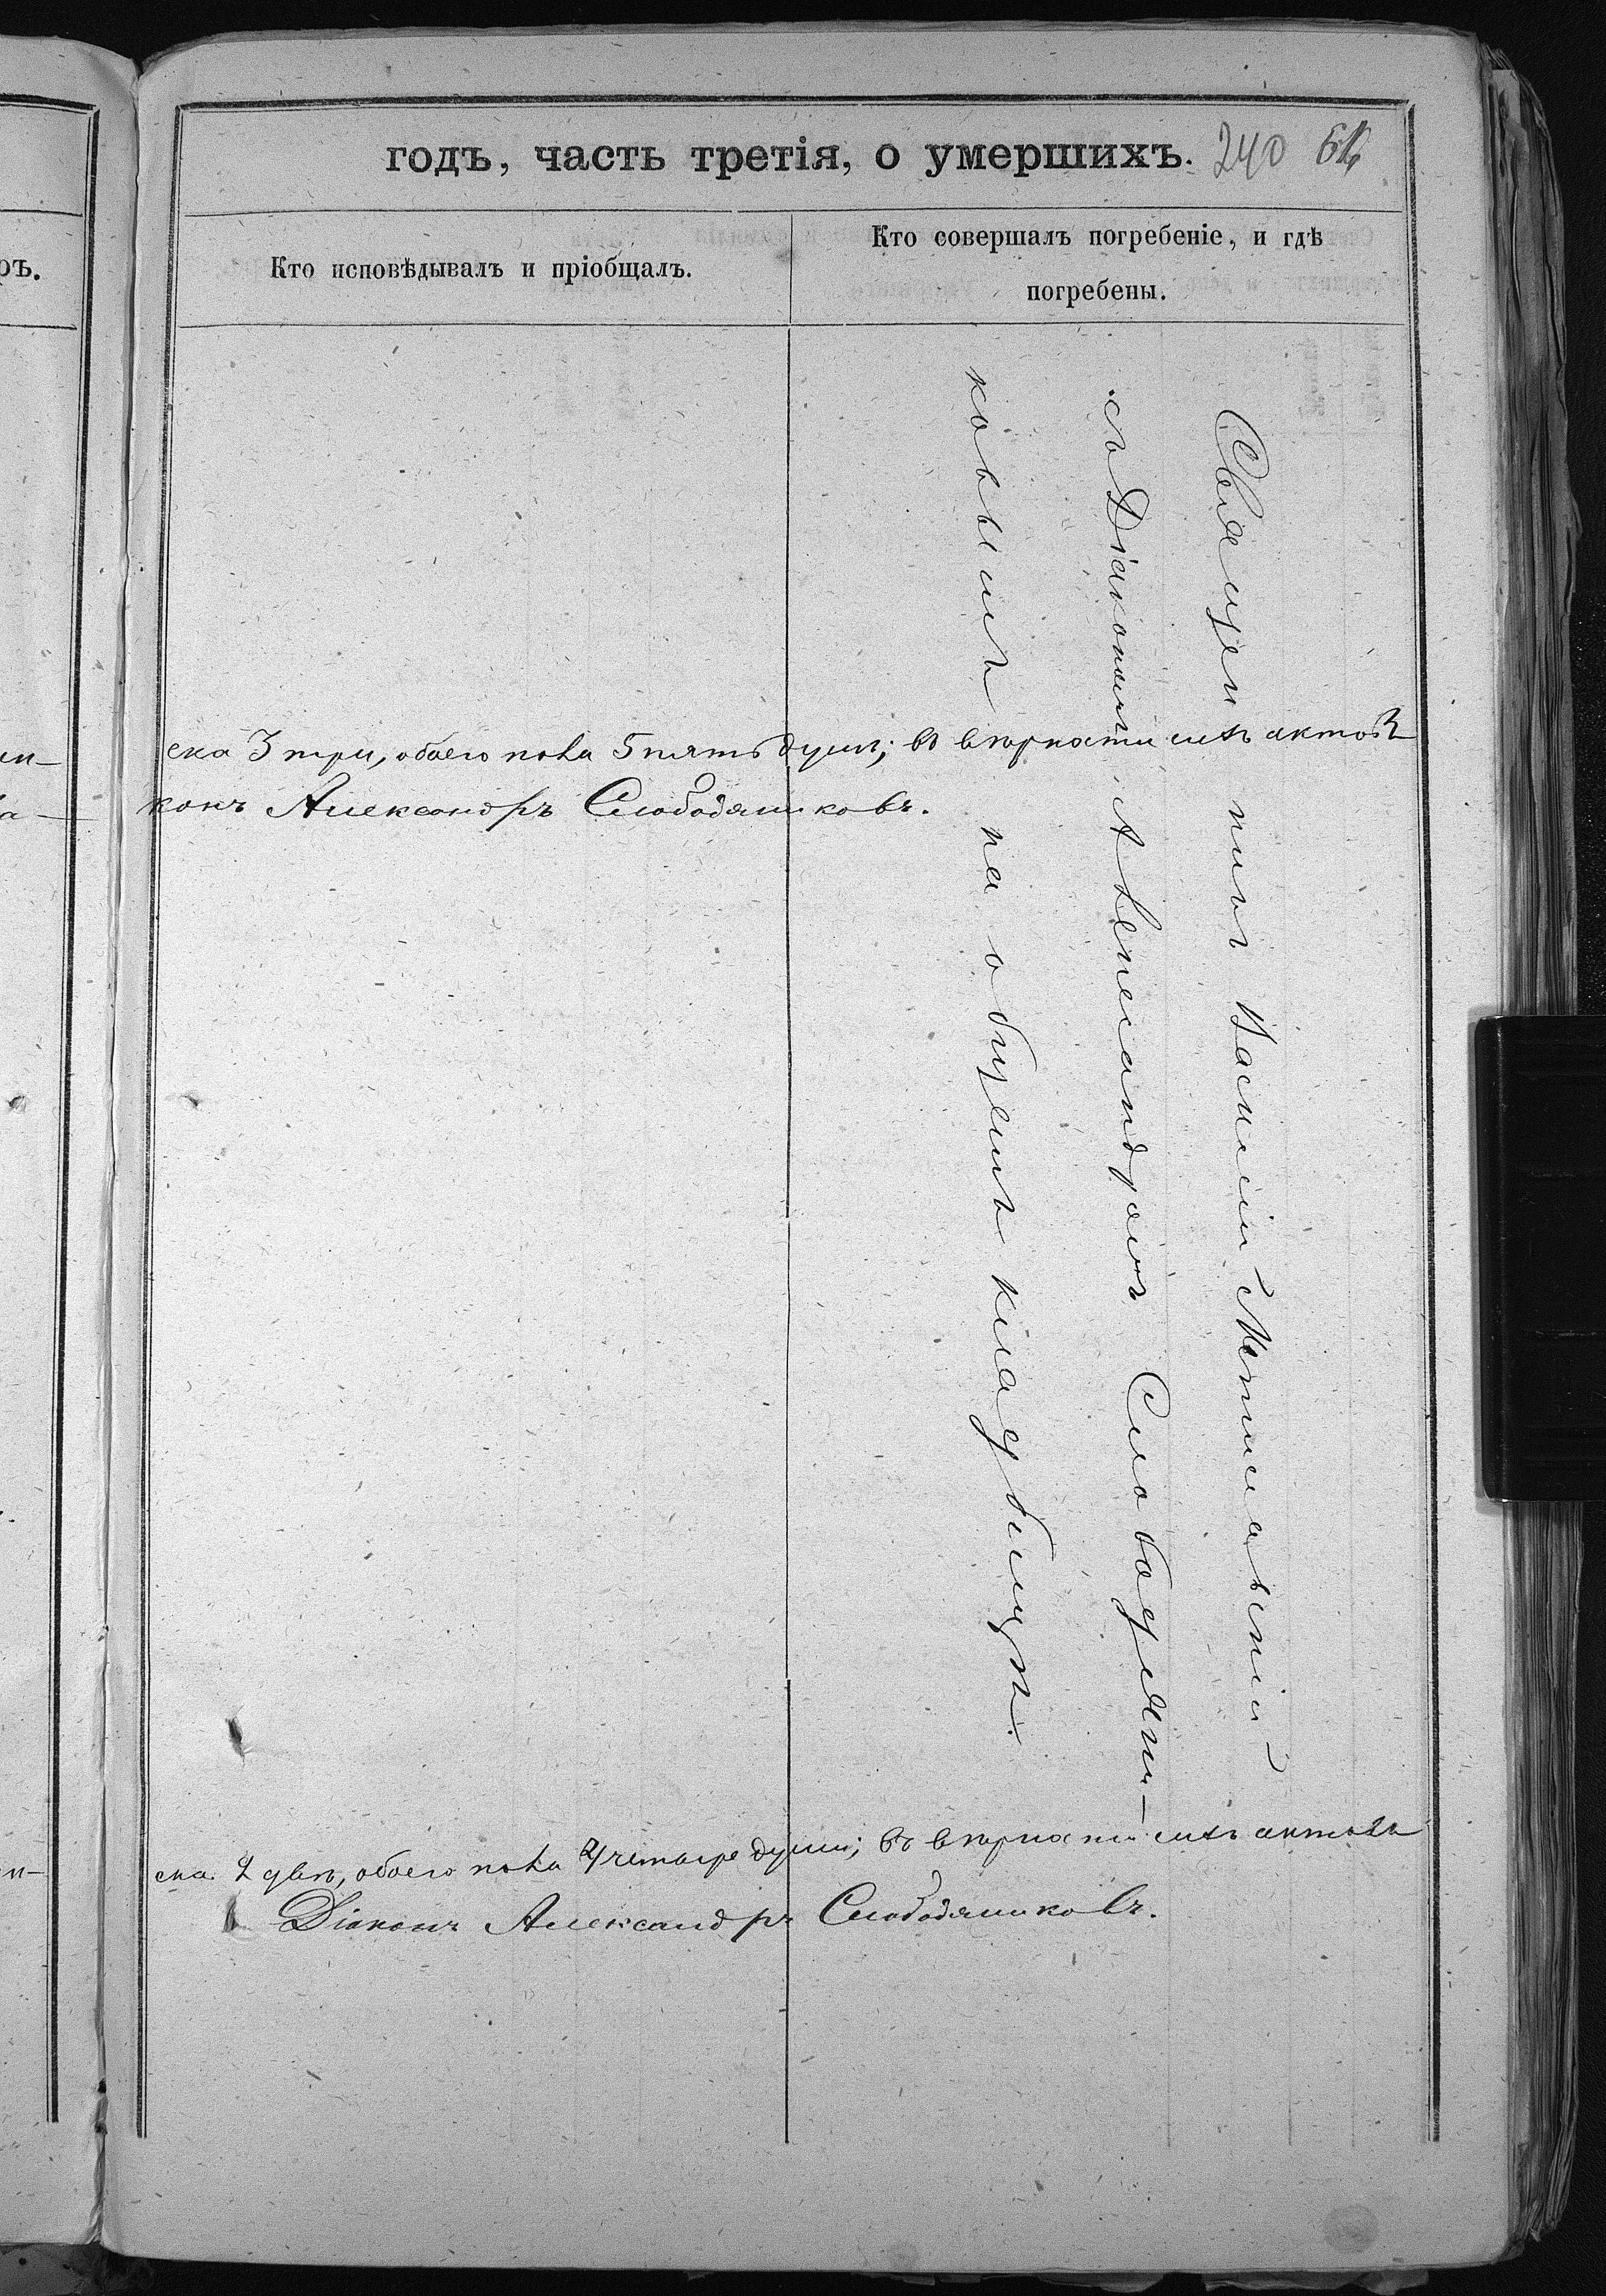 годъ, часть третія, о умершихъ. 240
Кто исповѣдывалъ и пріобщалъ.
Кто совершалъ погребеніе, и гдѣ
погребены.
Священникъ Василій Мстиславскій
съ Діакономъ Александромъ Слободчи-
ковымъ на общемъ кладбищѣ.
ска 3 три, обоего пола 5 пять душъ; въ вѣрности сихъ актовъ
конъ Александръ Слободчиковъ.
ска 2 двѣ, обоего пола 4 четыре души; въ вѣрности сихъ актовъ
Діаконъ Александръ Слободчиковъ.
ръ.